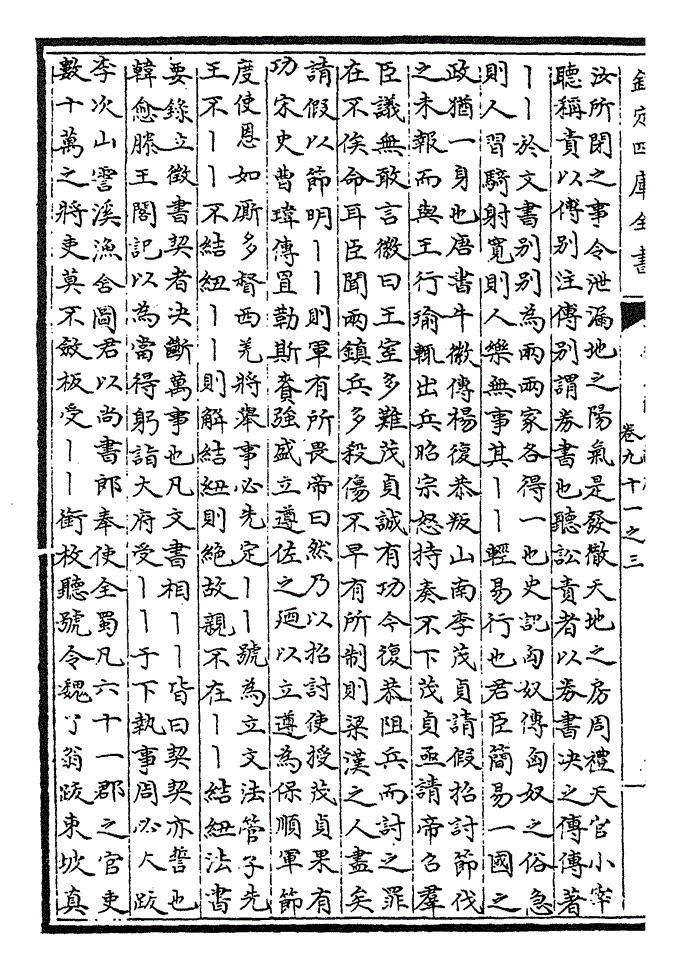 欽定四庫全書
卷九十一之三
汝所閉之事令泄漏地之陽氣是發徹天地之房周禮天官小宰
聽稱責以傅別注傅別謂券書也聽訟責者以券書决之傅傅著
丨丨於文書別別為兩兩家各得一也史記匈奴傳匈奴之俗急
則人習騎射寛則人樂無事其丨丨輕易行也君臣簡易一國之
政猶一身也唐書牛徽傳楊復恭叛山南李茂貞請假招討節伐
之未報而與王行瑜輒出兵昭宗怒持奏不下茂貞亟請帝召羣
臣議無敢言徽曰王室多難茂貞誠有功今復恭阻兵而討之罪
在不俟命耳臣聞兩鎮兵多殺傷不早有所制則梁漢之人盡矣
請假以節明丨丨則軍有所畏帝曰然乃以招討使授茂貞果有
功宋史曹瑋傳罝勒斯賚強盛立遵佐之廼以立遵為保順軍節
度使恩如廝多督西羌將舉事必先定丨丨號為立文法管子先
王不丨丨不結紐丨丨則解結紐則絶故親不在丨丨結紐法書
要錄立徵書契者决斷萬事也凡文書相丨丨皆曰契契亦誓也
韓愈滕王閣記以為當得躬詣大府受丨丨于下執事周必大跋
李次山霅溪漁舍圖君以尚書郎奉使全蜀凡六十一郡之官吏
數十萬之將吏莫不斂板受丨丨銜枚聽號令魏了翁跋東坡真